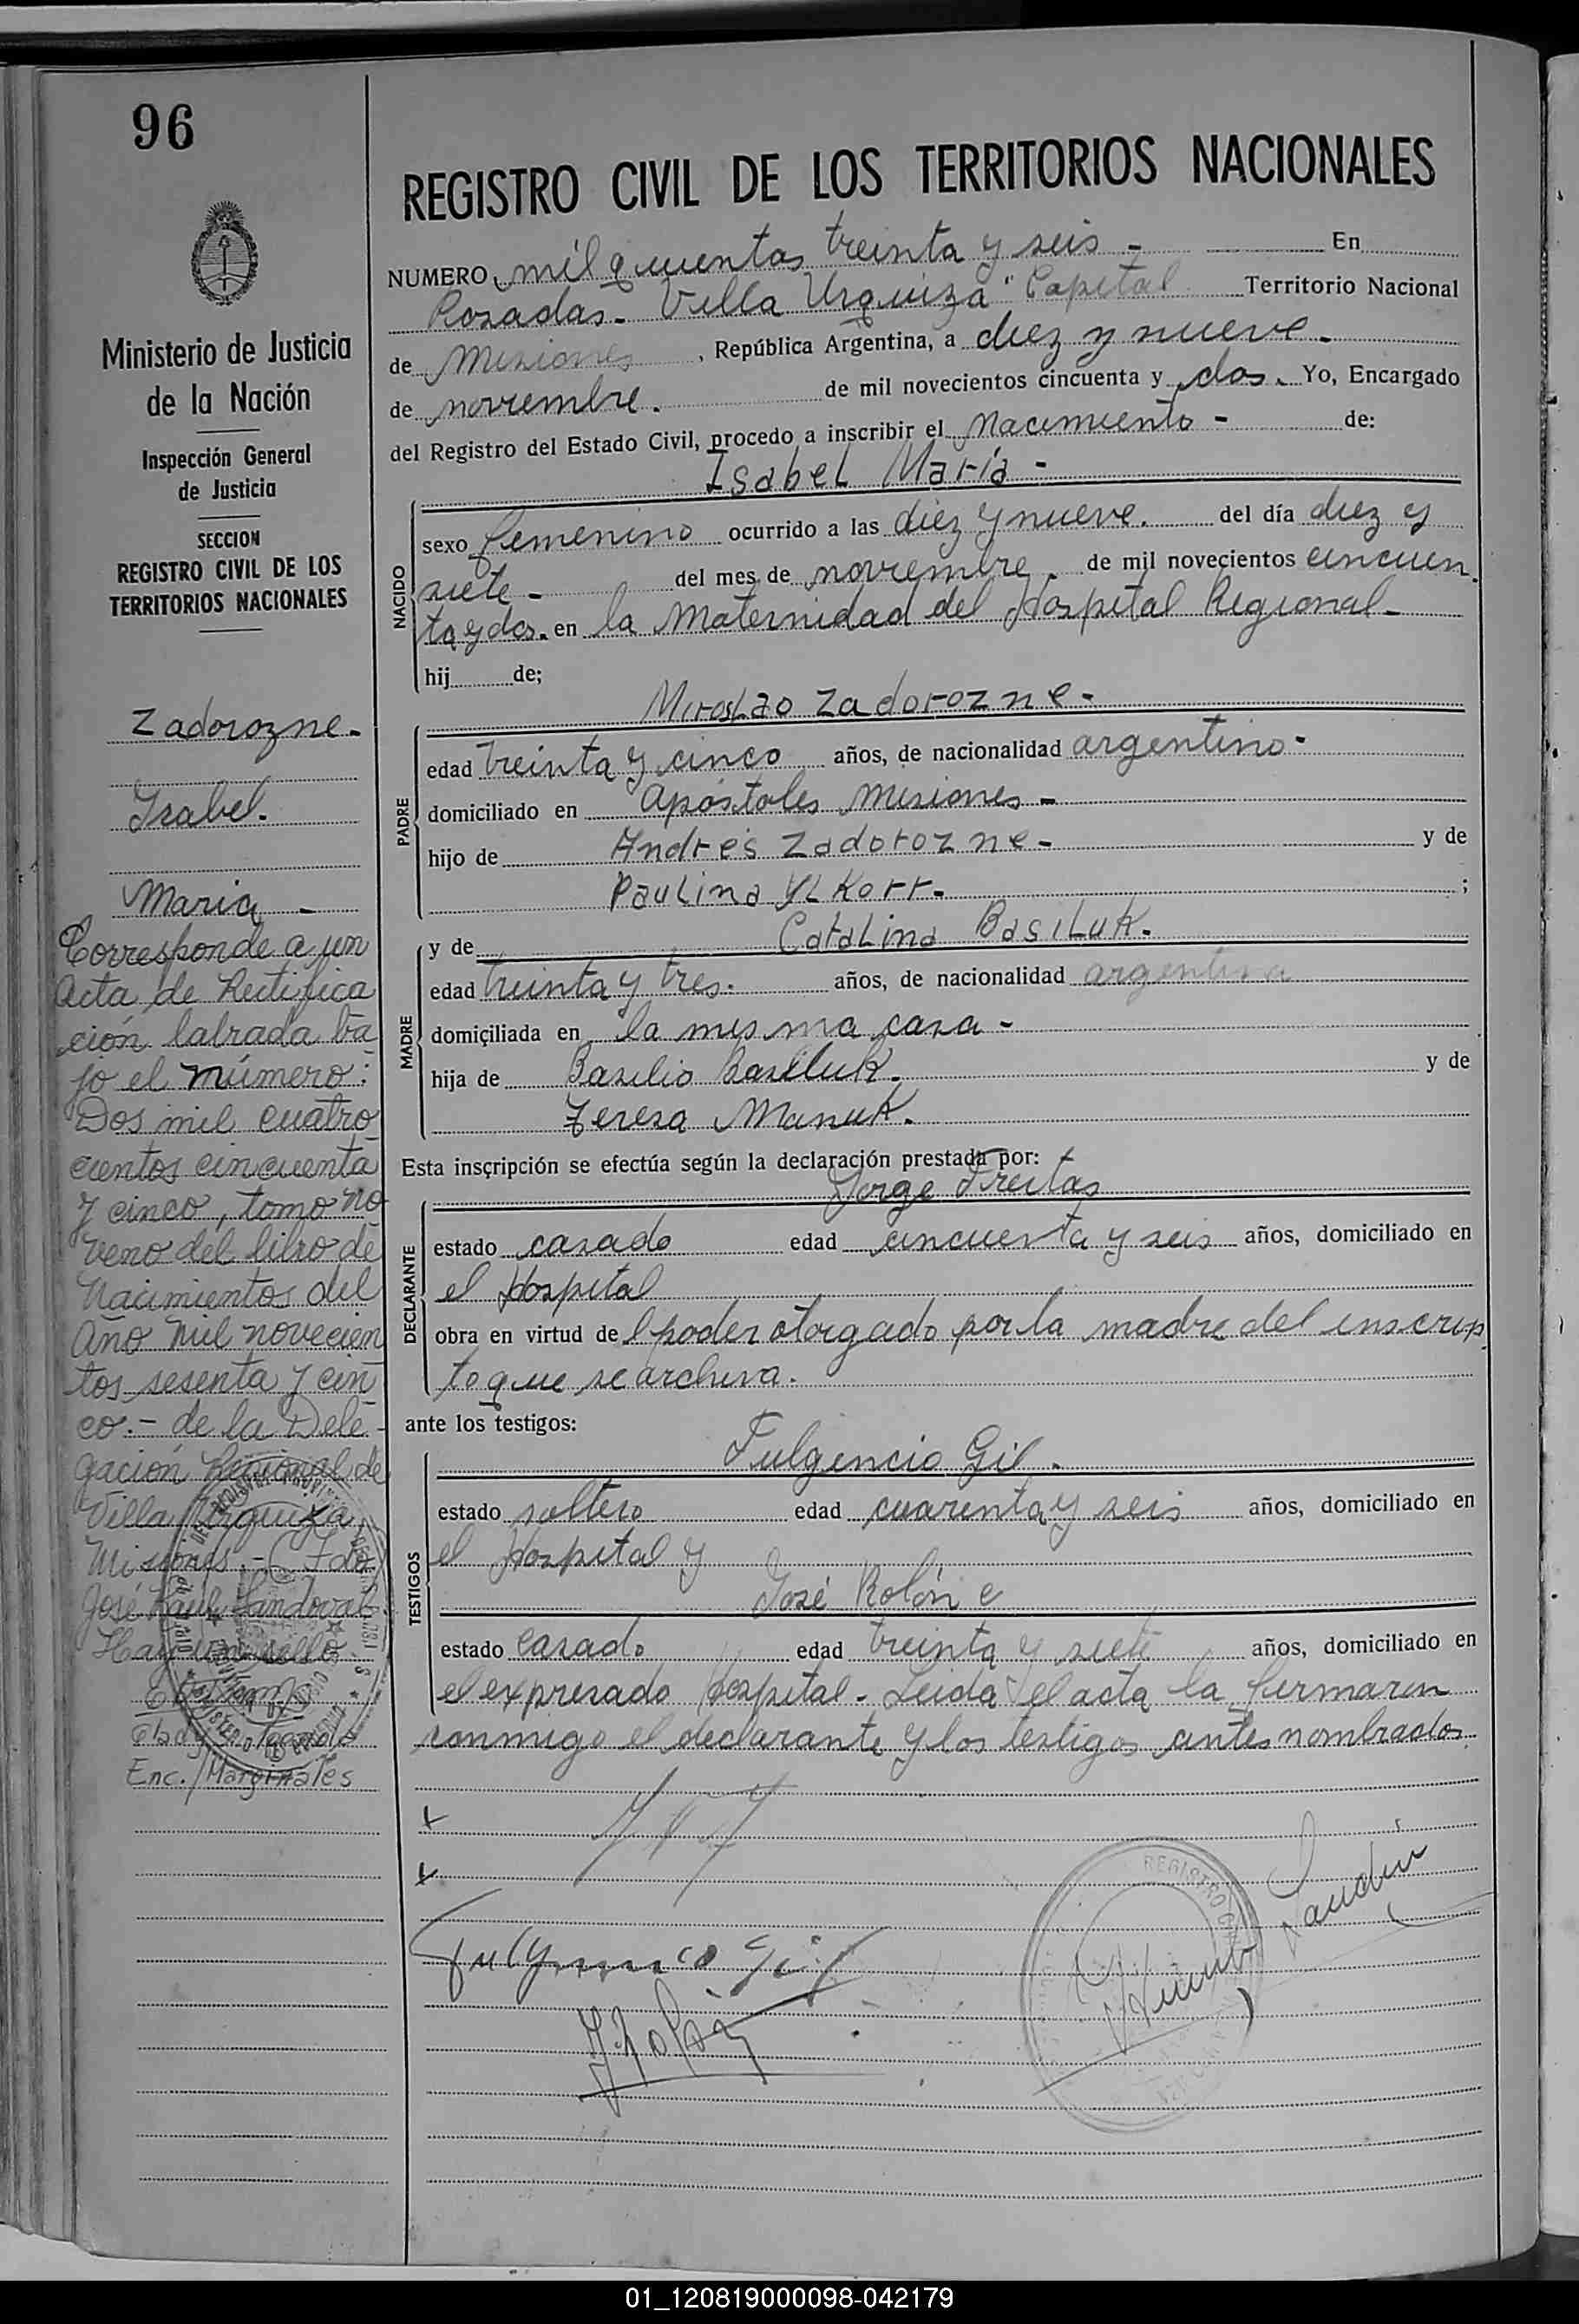 96
Ministerio de Justicia
de la Nación
Inspección General
de Justicia
SECCION
REGISTRO CIVIL DE LOS
TERRITORIOS NACIONALES
Zadorozne.-
Isabel.
Maria -
Corresponde a un
Acta de Rectifica
ción labrada ba
jo el número:
Dos mil cuatro
cientos cincuenta
y cinco, tomo no
veno del libro de
Nacimientos del
Año mil novecien
tos sesenta y cin
co.- de la Dele-
gación Regional de
Villa Urquiza
Misiones.- Fdo
José Raúl Sandoval
Hay un sello
Enc. Marginales
REGISTRO CIVIL DE LOS TERRITORIOS NACIONALES
NUMERO mil quinentos treinta y seis - En
Posadas - Villa Urquiza" Capital Territorio Nacional
de Misiones, República Argentina, a diez y nueve -
de noviembre. de mil novecientos cincuenta y dos. Yo, Encargado
del Registro del Estado Civil, procedo a inscribir el nacimiento - de:
Isabel María -
NACIDO
sexo femenino ocurrido a las diez y nueve. del día diez y
siete - del mes de noviembre. de mil novecientos cincuen
ta y dos. en la Maternidad del Hospital Regional -
hij de;
Miroslao Zadorozne -
PADRE
edad treinta y cinco años, de nacionalidad argentino -
domiciliado en Apóstoles Misiones -
hijo de Andrés Zadorozne - y de
Paulina Ilkorr - ;
MADRE
y de Catalina Basiluk.
edad treinta y tres. años, de nacionalidad argentina
domiciliada en la misma casa -
hija de Basilio Basiluk. y de
Teresa Manuk.
Esta inscripción se efectúa según la declaración prestada por:
Jorge Freitas
DECLARANTE
estado casado edad cincuenta y seis años, domiciliado en
el Hospital
obra en virtud del poder otorgado por la madre del inscrip
to que se archiva.
ante los testigos:
Fulgencio Gil.
TESTIGOS
estado soltero edad cuarenta y seis años, domiciliado en
el Hospital y
José Rolón e
estado casado edad treinta y siete años, domiciliado en
el expresado Hospital - Leida el acta la firmaron
conmigo el declarante y los testigos antes nombrados.
Fulgencio Gil
J Rolón
01_120819000098-042179